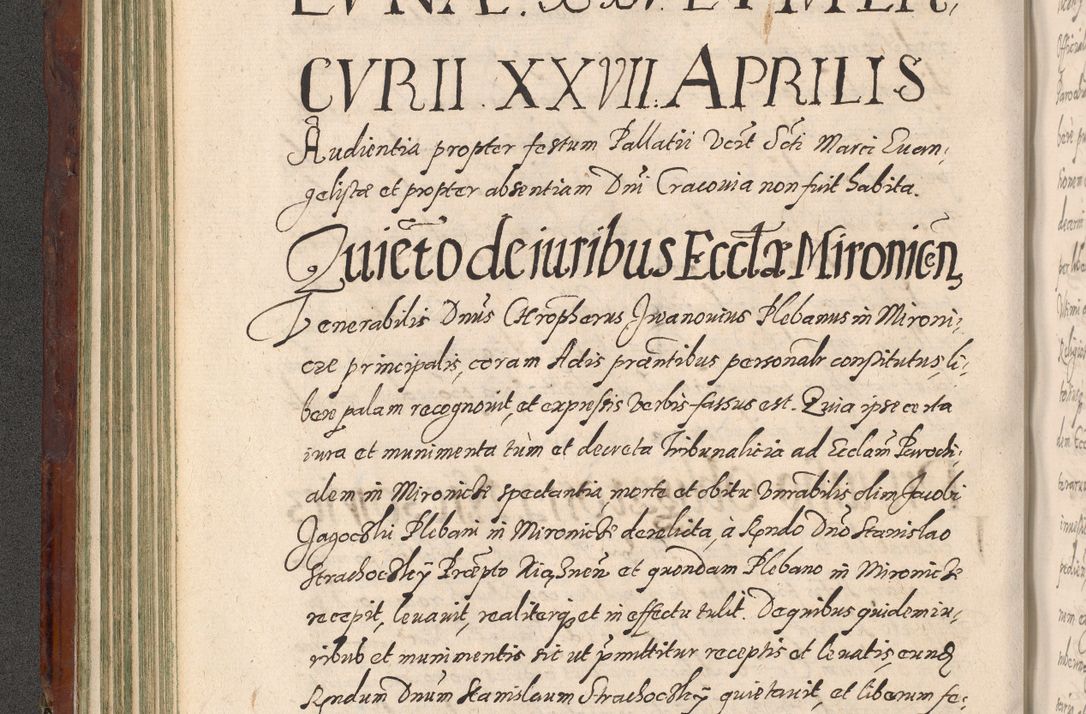 LVNÆ. XXV. ET MER,
CVRII. XXVII. APRILIS
Audientia propter festum Pallatii Vert Scti Marci Euan,
gelistæ et propter absentiam Dni Cracouia non fuit habita.
Quietō de iuribus Ecctæ Mironicēn,
Venerabilis Dnūs Chropherus Jwanouius Plebanus in Mironi,
cze principalis, coram Actis præntibus personalr constitutus, li,
bere palam recognouit, et expressis verbis fassus est. Quia ipse certa
iura et munimenta tùm et decreta Tribunalitia ad Ecclam Parochi,
alem in Mironicze spectantia, morte et obitu Vnrabilis olim Jacobi
Jagoczki Plebani in Mironicze derelicta, à Rndo Dno Stanislao
Strachoczky Præpto Xiąznen et quondam Plebano in Mironicze
recepit, leuauit, realiterq, et in effectu tulit. De quibus quidem iu,
ribus et munimentis sic ut pmittitur receptis et leuatis, eundē
Rndum Dnum Stanislaum Strachoczky quietauit, et liberum fe,